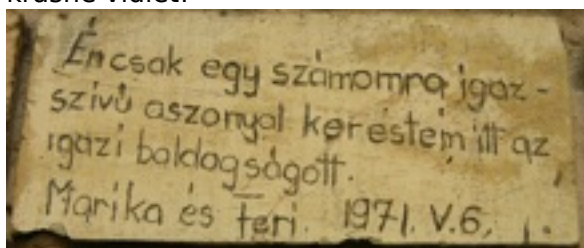 Én csak egy számomra igaz-
szívű aszonyal kerestem itt az
igazi boldogságott.
Marika és Feri. 1971. V.6.